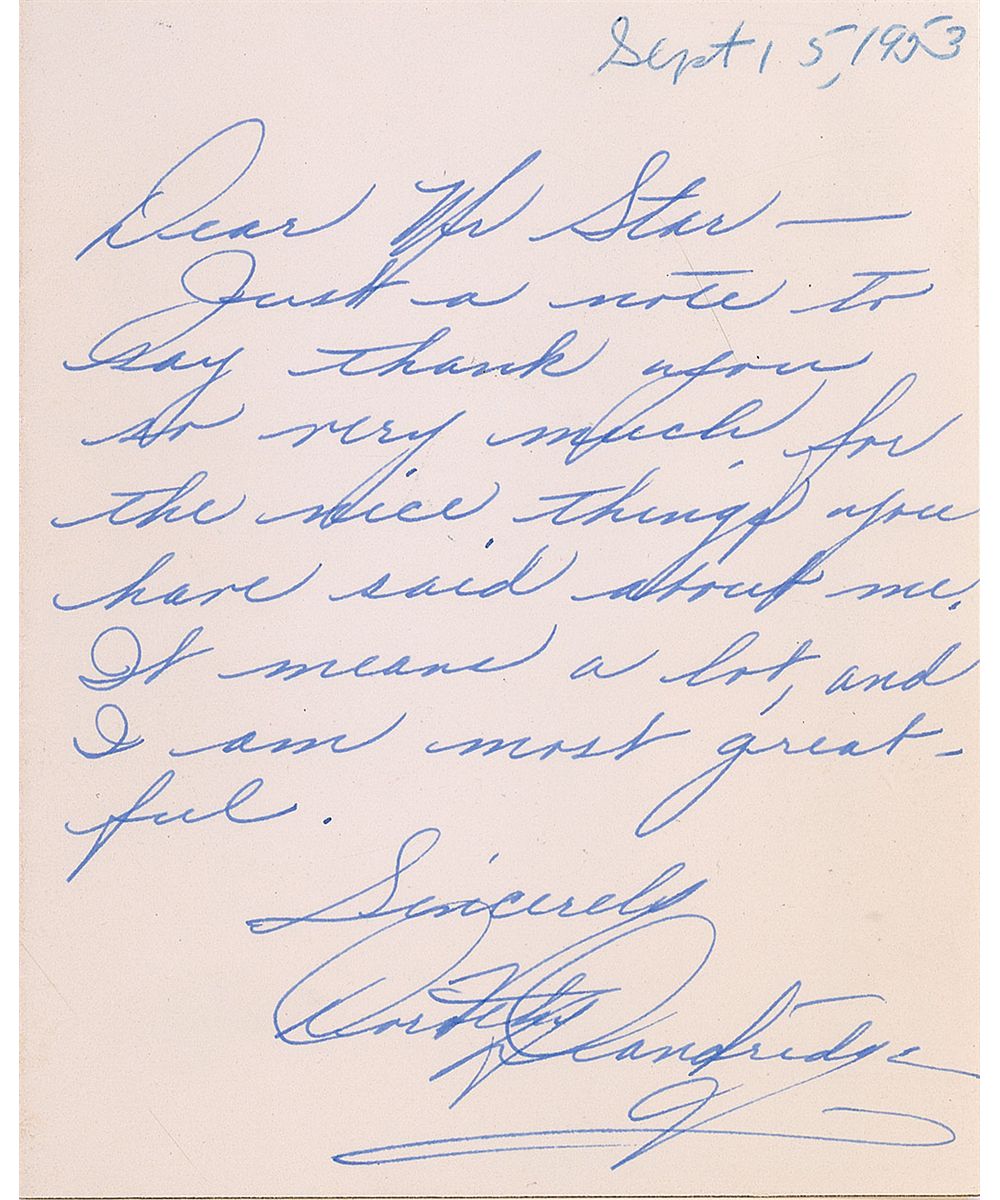 Sept 15, 1953
Dear Mr Star —
Just a note to
say thank you
so very much for
the nice things you
have said about me.
It means a lot, and
I am most great-
ful.
Sincerely
Dorothy Dandridge